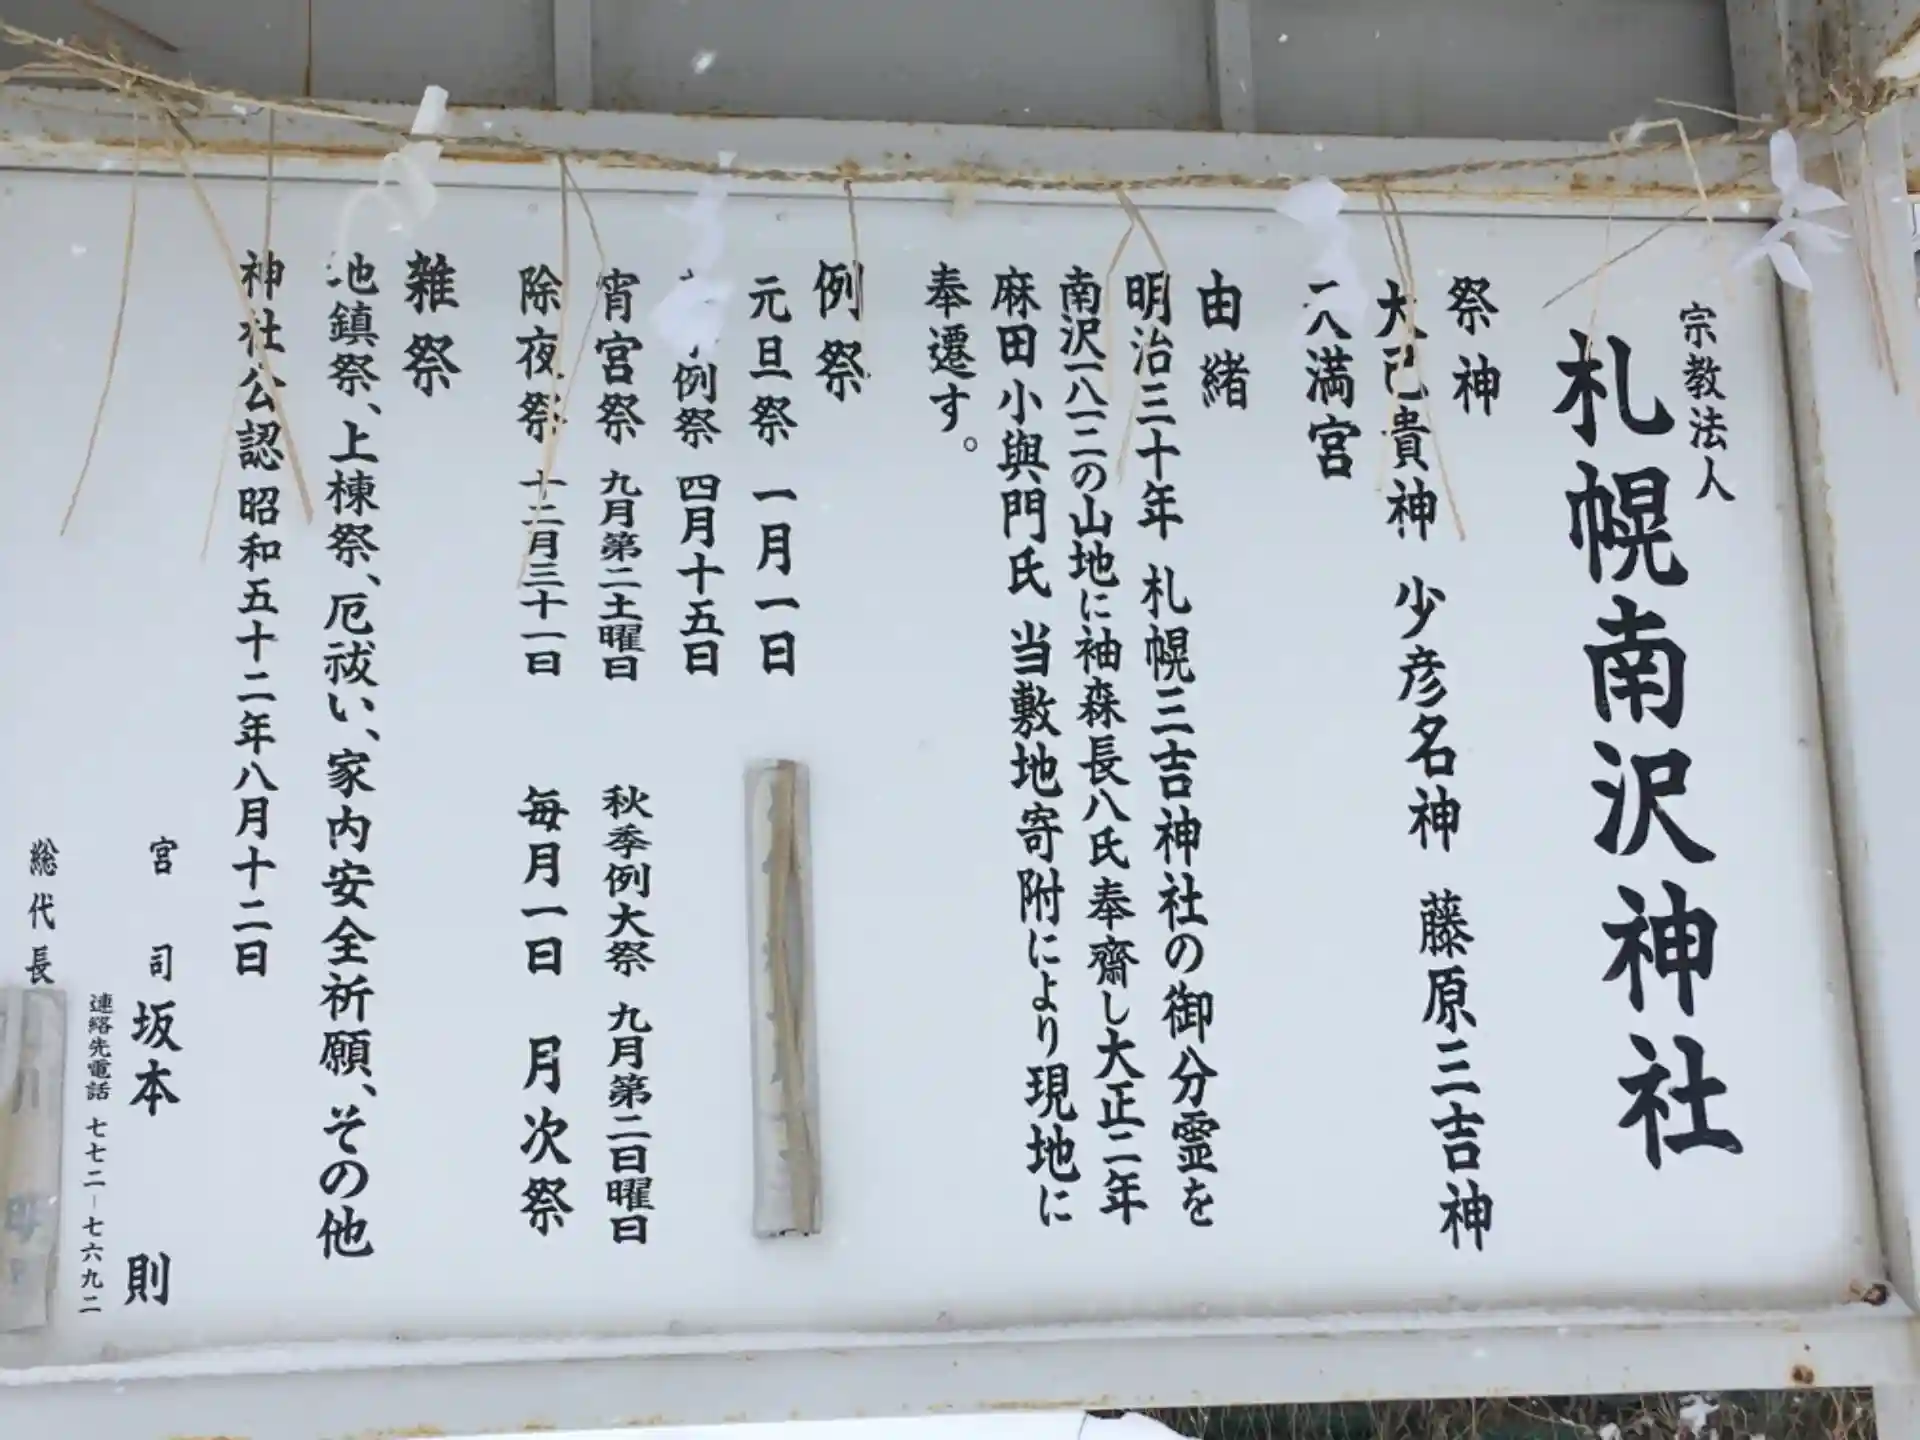 宗教法人
札幌南沢神社
祭神
大己貴神 少彦名神 藤原三吉神
満宮
由緒
明治三十年 札幌三吉神社の御分霊を
南沢一八一二の山地に袖森長八氏奉齋し大正二年
麻田小與門氏 当敷地寄附により現地に
奉遷す。
例祭
元旦祭 一月一日
例祭 四月十五日
宵宮祭 九月第二土曜日 秋季例大祭 九月第二日曜日
除夜祭 十二月三十一日 毎月一日 月次祭
雑祭
地鎮祭、上棟祭、厄祓い、家内安全祈願、その他
神社公認 昭和五十二年八月十二日
宮司 坂本 則
連絡先電話 七七二-七六九二
総代長